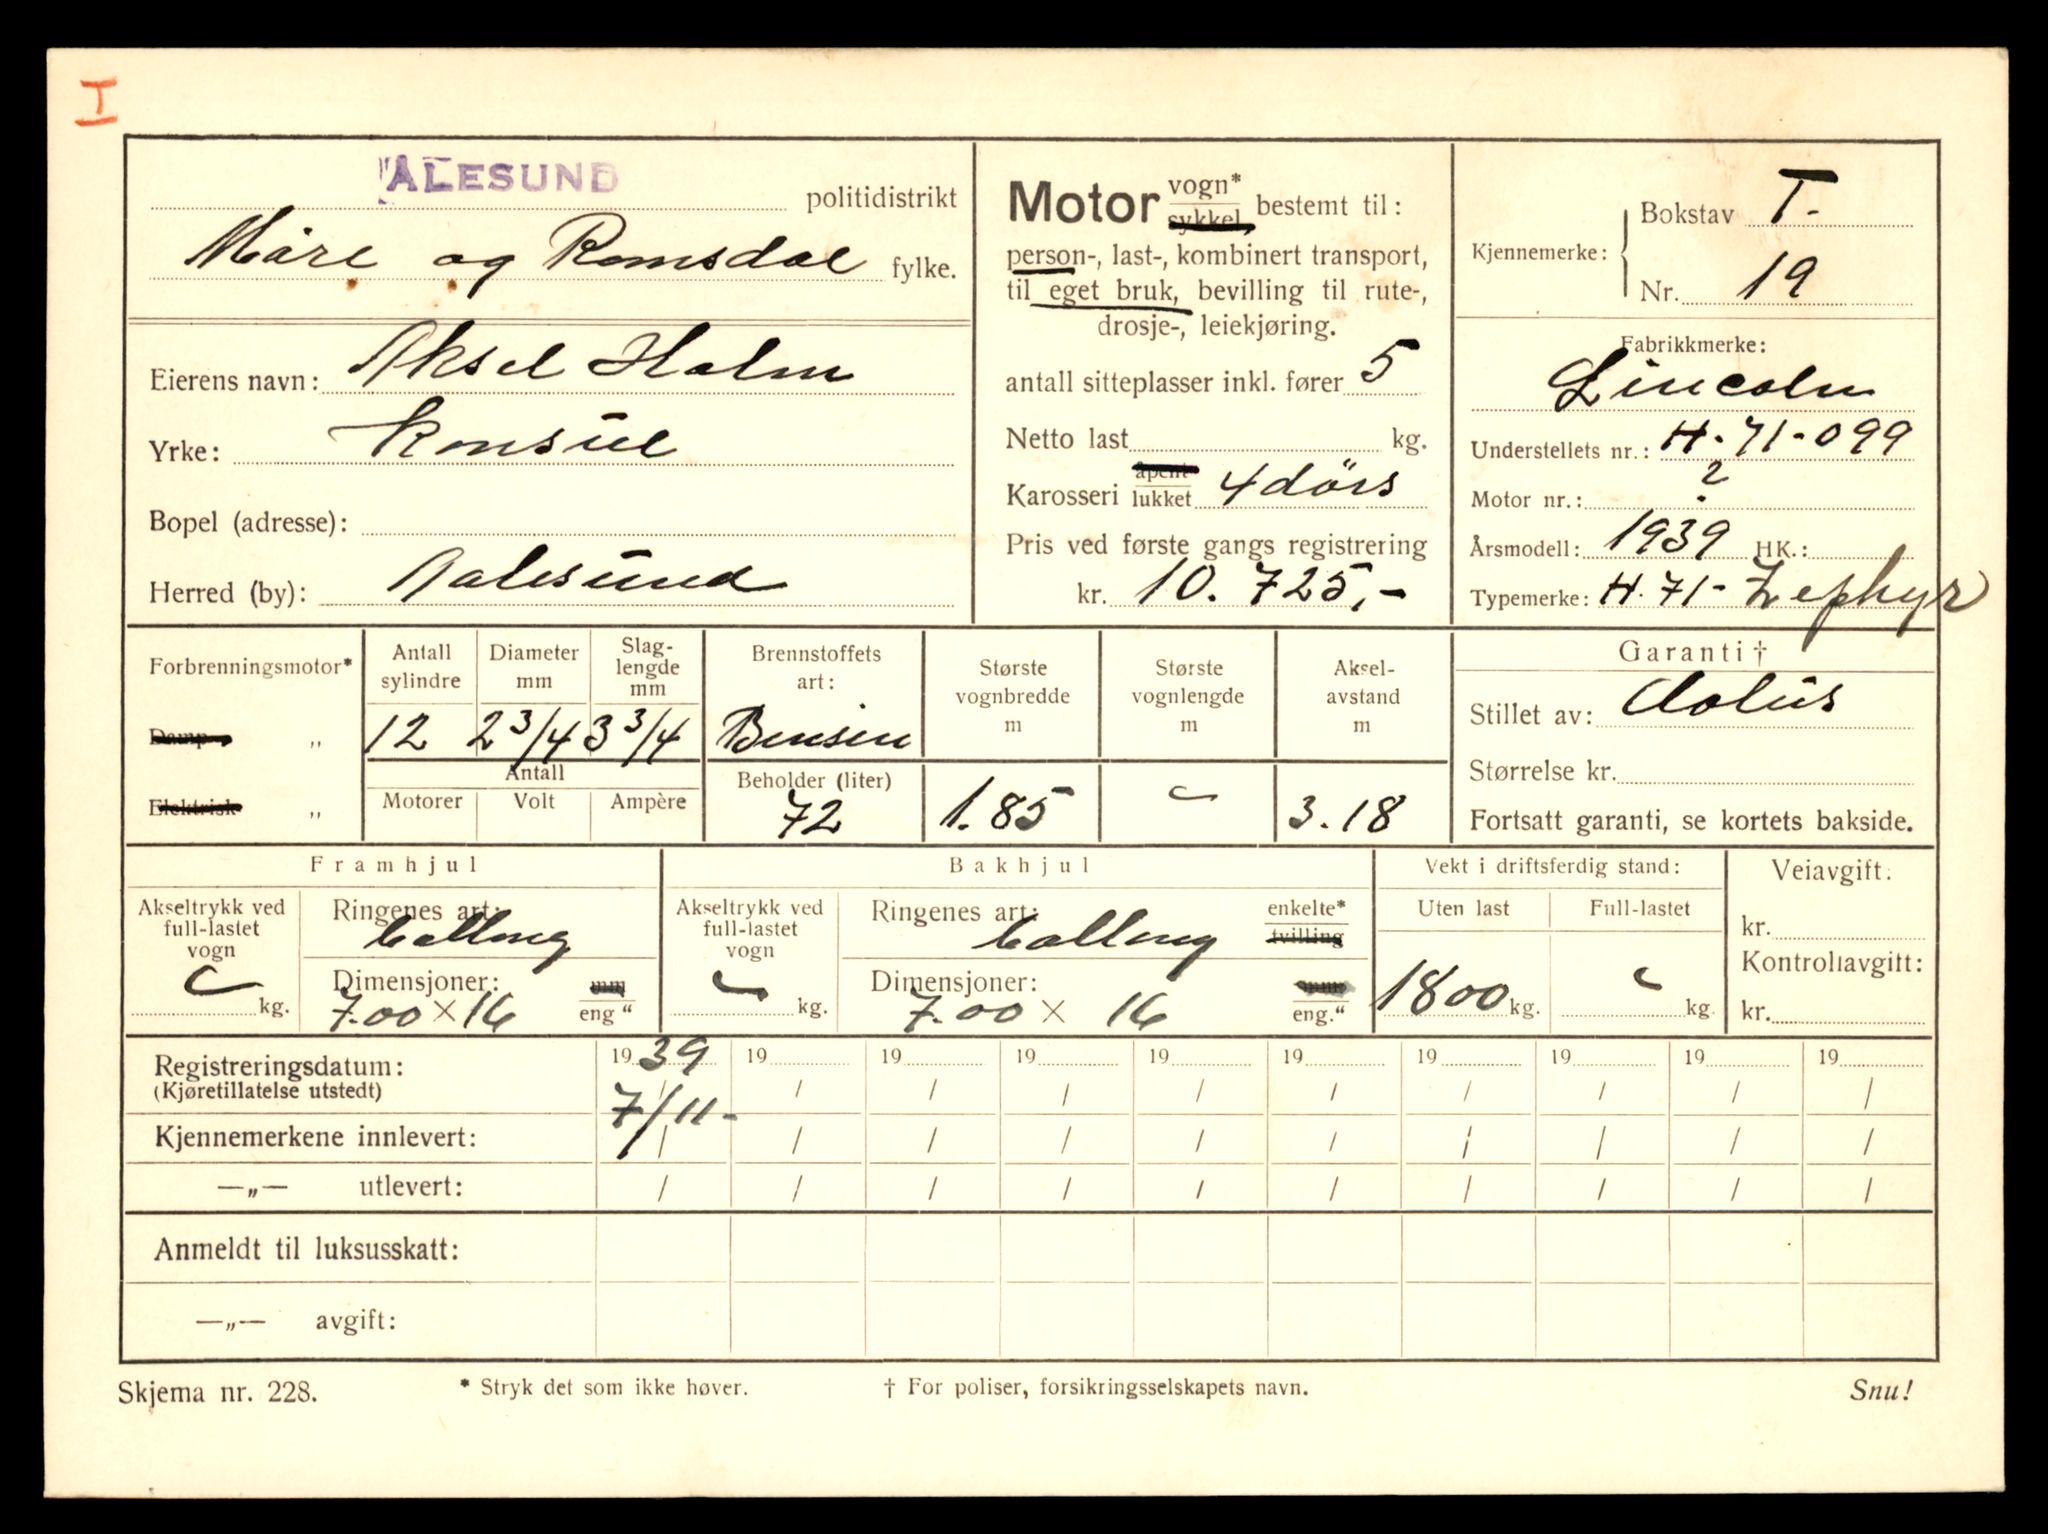 I
ÅLESUND politidistrikt
Møre og Romsdal fylke.
Eierens navn: Aksel Holm
Yrke: Konsul
Bopel (adresse):
Herred (by): Aalesund
Motor vogn* sykkel, bestemt til:
person-, last-, kombinert transport,
til eget bruk, bevilling til rute-,
drosje-, leiekjøring.
antall sitteplasser inkl. fører 5
Netto last kg.
Karosseri åpent lukket 4 dørs
Pris ved første gangs registrering
kr. 10.725,-
Kjennemerke: Bokstav T-
Nr. 19
Fabrikkmerke:
Lincoln
Understellets nr.: H-71-099
Motor nr.: ?
Årsmodell: 1939 HK.:
Typemerke: H.71- Zephyr
Forbrenningsmotor*
Damp- „
Elektrisk „
Antall sylindre
12
Diameter mm
2 3/4
Slaglengde mm
3 3/4
Antall
Motorer Volt Ampère
Brennstoffets art:
Bensin
Beholder (liter)
72
Største vognbredde m
1.85
Største vognlengde m
Akselavstand m
3.18
Garanti †
Stillet av: Aolus
Størrelse kr.
Fortsatt garanti, se kortets bakside.
Framhjul
Akseltrykk ved full-lastet vogn
kg.
Ringenes art: ballong
Dimensjoner: mm
7.00 × 16 eng “
Bakhjul
Akseltrykk ved full-lastet vogn
kg.
Ringenes art: ballong enkelte* tvilling
Dimensjoner: mm
7.00 × 16 eng.“
Vekt i driftsferdig stand:
Uten last Full-lastet
1800 kg. kg.
Veiavgift:
kr.
Kontrollavgift:
kr.
Registreringsdatum: 1939 19 19 19 19 19 19 19 19 19
(Kjøretillatelse utstedt) 7/11- / / / / / / / / /
Kjennemerkene innlevert: / / / / / / / / / /
—„— utlevert: / / / / / / / / / /
Anmeldt til luksusskatt:
—„— avgift:
Skjema nr. 228. * Stryk det som ikke høver. † For poliser, forsikringsselskapets navn. Snu!